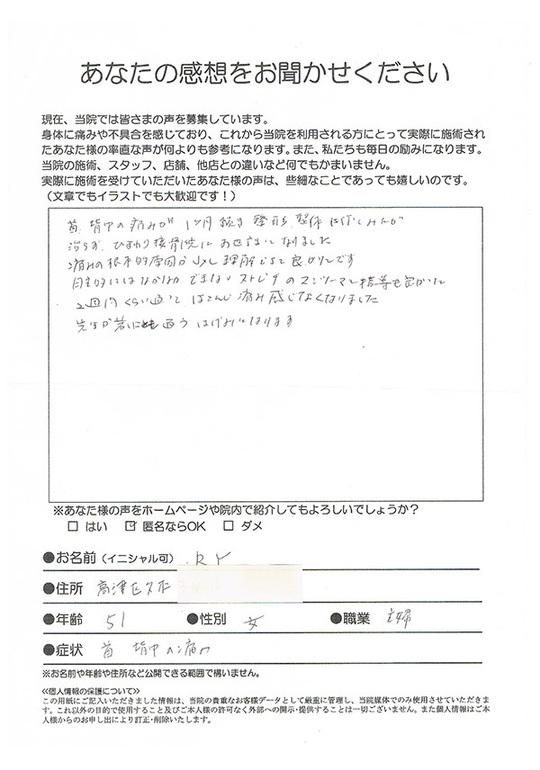 あなたの感想をお聞かせください
現在、当院では皆さまの声を募集しています。
身体に痛みや不具合を感じており、これから当院を利用される方にとって実際に施術され
たあなた様の率直な声が何よりも参考になります。また、私たちも毎日の励みになります。
当院の施術、スタッフ、店舗、他店との違いなど何でもかまいません。
実際に施術を受けていただいたあなた様の声は、些細なことであっても嬉しいのです。
（文章でもイラストでも大歓迎です！）
首 背中の痛みが 1ヶ月 続き 整形 整体
治らず ひまわり接骨院に お世話になりました
痛みの根本的原因が少し理解できて良かったです
なかなか できない ストレッチ のマンツーマン指導も
2週間くらい通って ほとんど痛み感じなくなりました
先生が 通う はげみになります
※あなた様の声をホームページや院内で紹介してもよろしいでしょうか？
□ はい ☑ 匿名ならOK □ ダメ
●お名前（イニシャル可） R Y
●住所 高津区久本
●年齢 51 ●性別 女 ●職業 主婦
●症状 首 背中の痛み
※お名前や年齢や住所など公開できる範囲で構いません。
≪個人情報の保護について≫
この用紙にご記入いただきました情報は、当院の貴重なお客様データとして厳重に管理し、当院媒体でのみ使用させていただきま
す。これ以外の目的で使用すること及びご本人様の許可なく外部への開示・提供することは一切ございません。また個人情報はご本
人様からのお申し出により訂正・削除いたします。